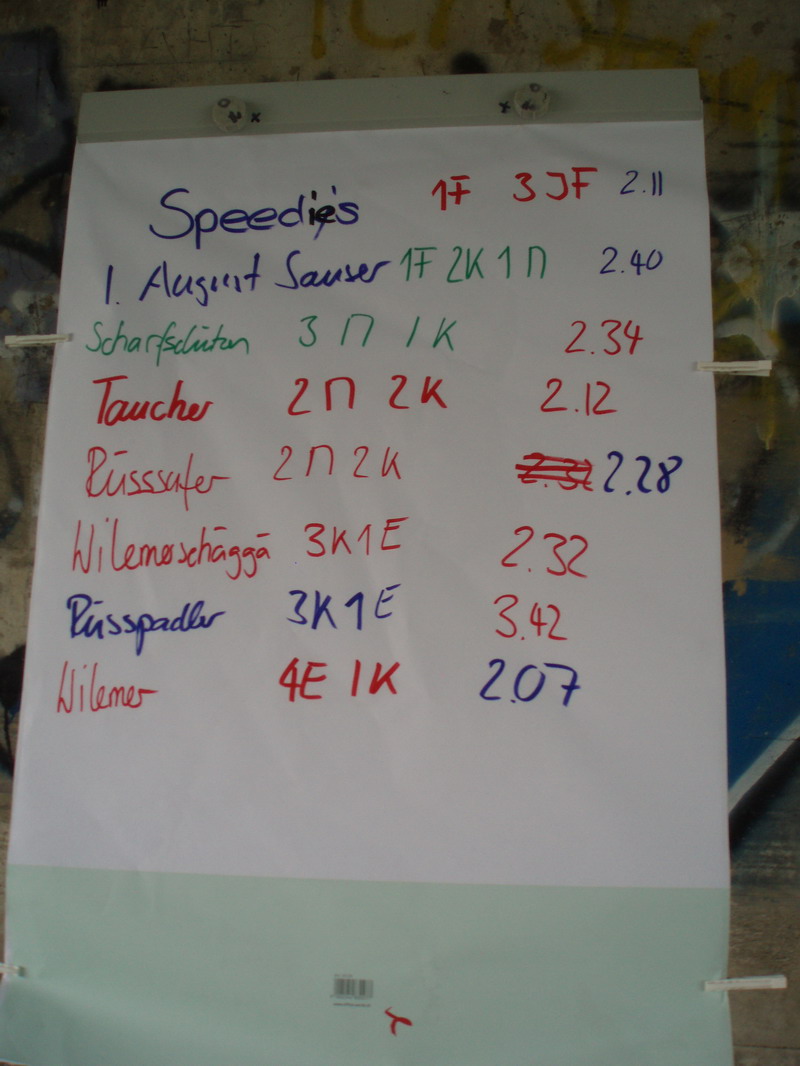 Speedie's 1F 3 JF 2.11
1. August Sauser 1F 2K 1 Π 2.40
Scharfschützen 3 Π 1 K 2.34
Taucher 2 Π 2 K 2.12
Rüsssafer 2 Π 2 K 2.32 2.28
Wilemerschäggä 3K 1 E 2.32
Rüsspadler 3K 1 E 3.42
Wilemer 4E 1K 2.07